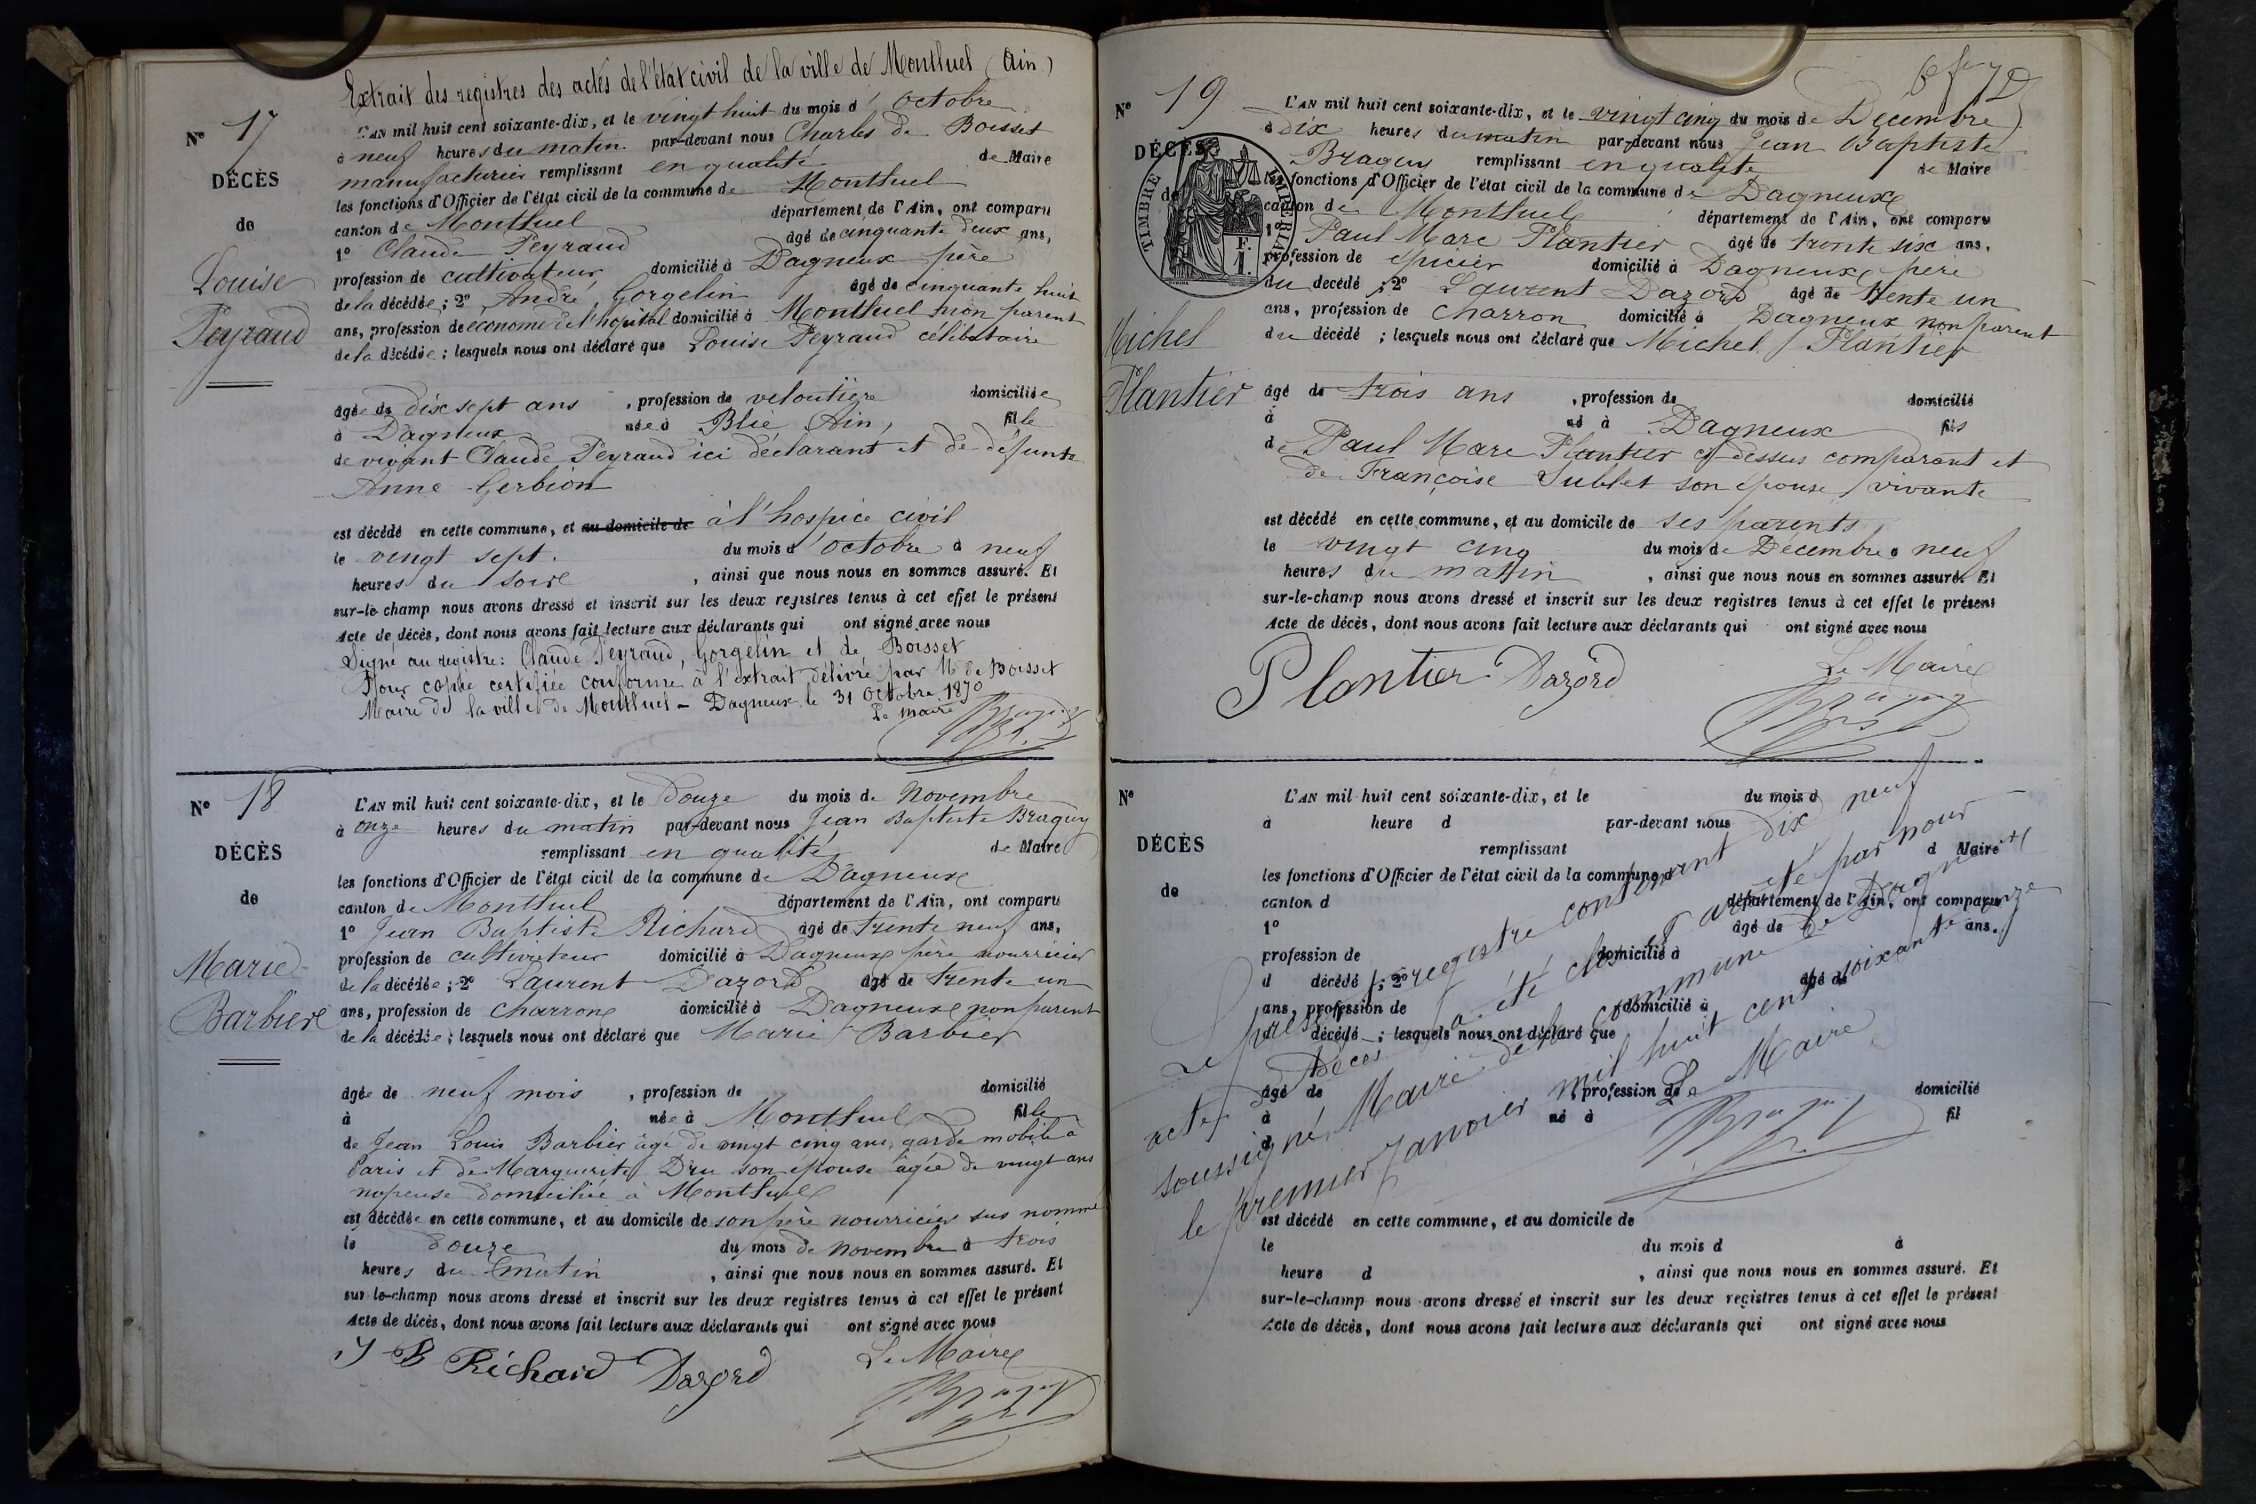 Extrait des registres des actes de l'état civil de la ville de Montluel (Ain)
N° 17
DÉCÈS
de
Louise
Peyraud
L'AN mil huit cent soixante-dix, et le vingt huit du mois d'Octobre
à neuf heures du matin par-devant nous Charles de Boisset
manufacturier remplissant en qualité de Maire
les fonctions d'Officier de l'état civil de la commune de Montluel
canton de Montluel département de l'Ain, ont comparu
1° Claude Peyraud âgé de cinquante deux ans,
profession de cultivateur domicilié à Dagneux père
de la décédée ; 2° André Gorgelin âgé de cinquante huit
ans, profession de économe de l'hopital domicilié à Montluel non parent
de la décédée ; lesquels nous ont déclaré que Louise Peyraud célibataire
âgé de dix sept ans , profession de veloutière domiciliée
à Dagneux née à Blié Ain, fille
de vivant Claude Peyraud ici déclarant et de défunte
Anne Gerbion
est décédé en cette commune, et au domicile de à l'hospice civil
le vingt sept. du mois d'octobre à neuf
heures du soir , ainsi que nous nous en sommes assuré. Et
sur-le-champ nous avons dressé et inscrit sur les deux registres tenus à cet effet le présent
Acte de décès, dont nous avons fait lecture aux déclarants qui ont signé avec nous
Signé au registre : Claude Peyraud, Gorgelin et de Boisset
Pour copie certifiée conforme à l'extrait délivré par M. de Boisset
Maire de la ville de Montluel - Dagneux le 31 Octobre 1870
Le maire
N° 18
DÉCÈS
de
Marie
Barbier
L'AN mil huit cent soixante-dix, et le Douze du mois de Novembre
à onze heures du matin par-devant nous Jean Baptiste Braguy
remplissant en qualité de Maire
les fonctions d'Officier de l'état civil de la commune de Dagneux
canton de Montluel département de l'Ain, ont comparu
1° Jean Baptiste Richard âgé de trente neuf ans,
profession de cultivateur domicilié à Dagneux père nourricier
de la décédée ; 2° Laurent Dazord âgé de trente un
ans, profession de charron domicilié à Dagneux non parent
de la décédée ; lesquels nous ont déclaré que Marie Barbier
âgée de neuf mois , profession de domicilié
à née à Montluel fille
de Jean Louis Barbier âgé de vingt cinq ans, garde mobile à
Paris et de Marguerite Dru son épouse âgée de vingt ans
domiciliée à Montluel
est décédée en cette commune, et au domicile de son père nourricier sus nommé
le douze du mois de novembre à trois
heures du matin , ainsi que nous nous en sommes assuré. Et
sur-le-champ nous avons dressé et inscrit sur les deux registres tenus à cet effet le présent
Acte de décès, dont nous avons fait lecture aux déclarants qui ont signé avec nous
J B Richard Dazord Le Maire
N° 19
DÉCÈS
de
TIMBRE IMPERIAL
Michel
Plantier
L'AN mil huit cent soixante-dix, et le vingt cinq du mois de Décembre
à dix heures du matin par-devant nous Jean Baptiste
Braguy remplissant en qualité de Maire
les fonctions d'Officier de l'état civil de la commune de Dagneux
canton de Montluel département de l'Ain, ont comparu
1° Paul Marc Plantier âgé de trente six ans,
profession de épicier domicilié à Dagneux père
du décédé ; 2° Laurent Dazord âgé de trente un
ans, profession de charron domicilié à Dagneux non parent
du décédé ; lesquels nous ont déclaré que Michel Plantier
âgé de trois ans , profession de domicilié
à né à Dagneux fils
de Paul Marc Plantier ci-dessus comparant et
de Françoise Sublet son épouse vivante
est décédé en cette commune, et au domicile de ses parents
le vingt cinq du mois de Décembre à neuf
heures du matin , ainsi que nous nous en sommes assuré. Et
sur-le-champ nous avons dressé et inscrit sur les deux registres tenus à cet effet le présent
Acte de décès, dont nous avons fait lecture aux déclarants qui ont signé avec nous
Plantier Dazord Le Maire
N°
DÉCÈS
de
L'AN mil huit cent soixante-dix, et le du mois d
à heure d par-devant nous
remplissant d Maire
les fonctions d'Officier de l'état civil de la commune d
canton d département de l'Ain, ont comparu
1° âgé de ans,
profession de domicilié à
d décédé ; 2° âgé de
ans, profession de domicilié à
d décédé ; lesquels nous ont déclaré que
âgé de , profession de domicilié
à né à fil
d
est décédé en cette commune, et au domicile de
le du mois d à
heure d , ainsi que nous nous en sommes assuré. Et
sur-le-champ nous avons dressé et inscrit sur les deux registres tenus à cet effet le présent
Acte de décès, dont nous avons fait lecture aux déclarants qui ont signé avec nous
Le présent registre contenant dix neuf
actes Décès a été clos et arrêté par nous
soussigné Maire de la commune de Dagneux
le premier Janvier mil huit cent soixante onze
Le Maire